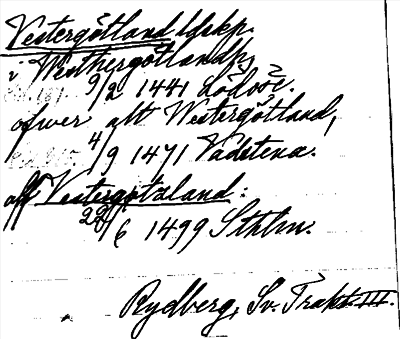 Vestergötland ldskp.
i Westhergötlandh,
9/2 1441 Lödöse.
ofwer alt Westergötland,
4/9 1471 Vadstena.
aff Vestergötzland:
28/6 1499 Sthlm.
Rydberg, Sv. Trakt. III.